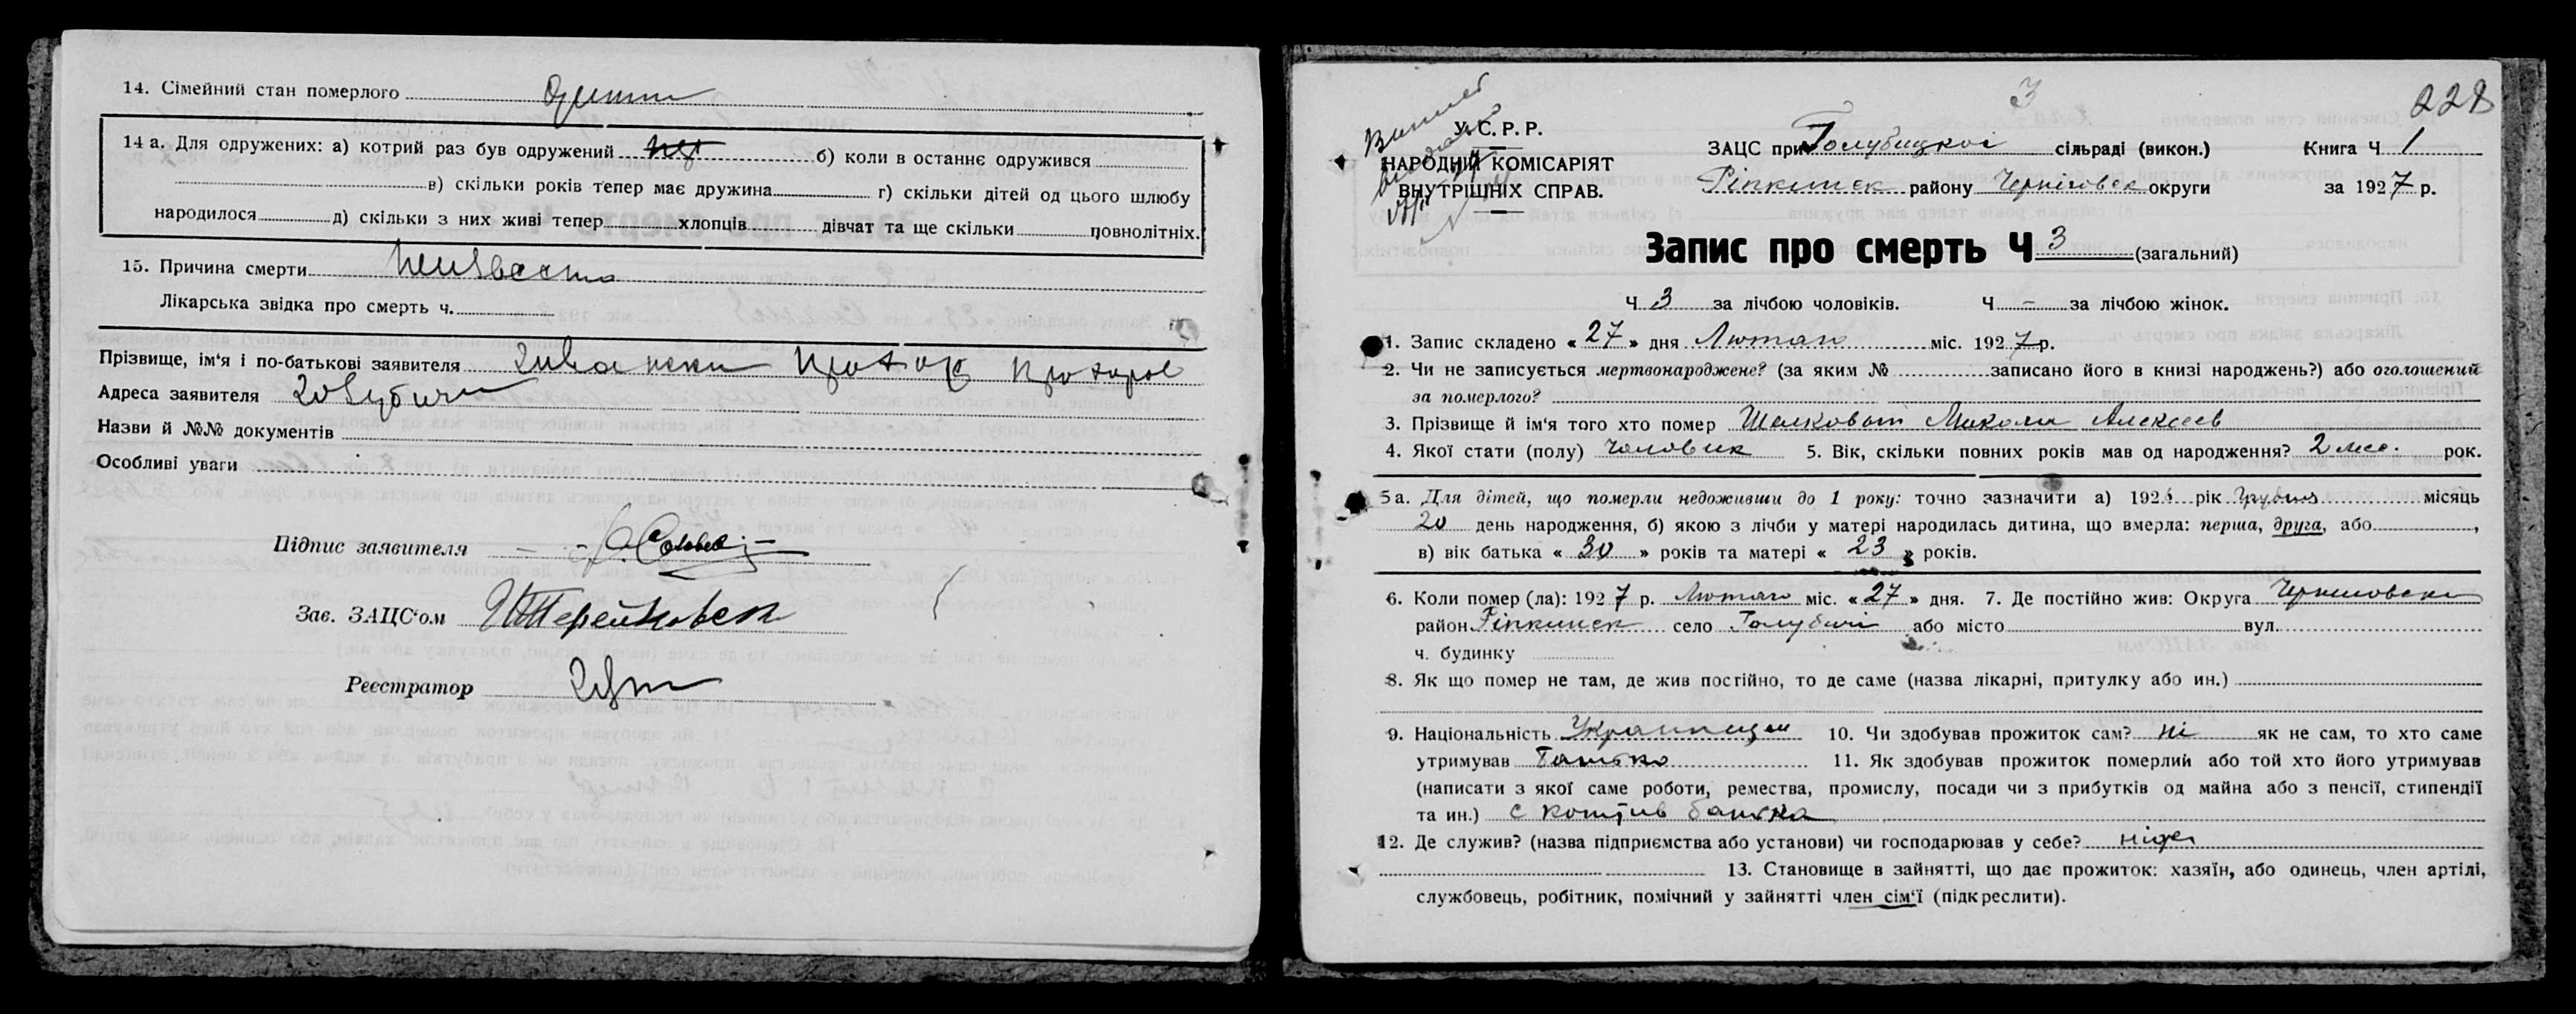 14. Сімейний стан померлого
14 а. Для одружених: а) котрий раз був одружений нет б) коли в останнє одружився
в) скільки років тепер має дружина г) скільки дітей од цього шлюбу
народилося д) скільки з них живі тепер хлопців дівчат та ще скільки повнолітніх.
15. Причина смерти Неизвестно
Лікарська звідка про смерть ч.
Прізвище, ім'я і по-батькові заявителя
Адреса заявителя Голубичи
Назви й №№ документів
Особливі уваги
Підпис заявителя
Зав. ЗАЦС'ом
Реєстратор
3
228
У. С. Р. Р.
НАРОДНІЙ КОМІСАРІЯТ
ВНУТРІШНІХ СПРАВ.
ЗАЦС при Голубицкої сільраді (викон.) Книга Ч 1
Ріпкинск району Чернiговск округи за 1927 р.
Запис про смерть Ч 3 (загальний)
Ч 3 за лічбою чоловіків. Ч – за лічбою жінок.
1. Запис складено « 27 » дня Лютаго міс. 1927 р.
2. Чи не записується мертвонароджене? (за яким № записано його в книзі народжень?) або оголошений
за померлого?
3. Прізвище й ім'я того хто помер Шелковый Микола Алексеев
4. Якої стати (полу) Чоловик 5. Вік, скільки повних років мав од народження? 2 мес. рок.
5 а. Для дітей, що померли недоживши до 1 року: точно зазначити а) 1926 рік Грудня місяць
20 день народження, б) якою з лічби у матері народилась дитина, що вмерла: перша, друга, або ,
в) вік батька « 30 » років та матері « 23 » років.
6. Коли помер (ла): 1927 р. Лютаго міс. « 27 » дня. 7. Де постійно жив: Округа Черниговска
район Ріпкинск село Голубичі або місто вул.
ч. будинку
8. Як що помер не там, де жив постійно, то де саме (назва лікарні, притулку або ин.)
9. Національність Украинцем 10. Чи здобував прожиток сам? ні як не сам, то хто саме
утримував Батько 11. Як здобував прожиток померлий або той хто його утримував
(написати з якої саме роботи, ремества, промислу, посади чи з прибутків од майна або з пенсії, стипендії
та ин.) с коштів батька
12. Де служив? (назва підприємства або установи) чи господарював у себе? ніде
13. Становище в зайнятті, що дає прожиток: хазяїн, або одинець, член артілі,
службовець, робітник, помічний у зайнятті член сім'ї (підкреслити).